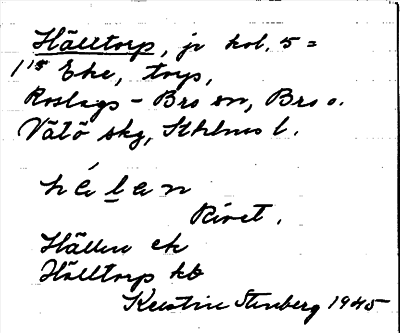 Hälltorp, jr kol. 5 =
1¹⁵ Eke, torp,
Roslags-Bro sn, Bro o.
Vätö skg, Sthlms l.
hélan
Rivet.
Hällen ek
Hälltorp kb
Kerstin Stenberg 1945